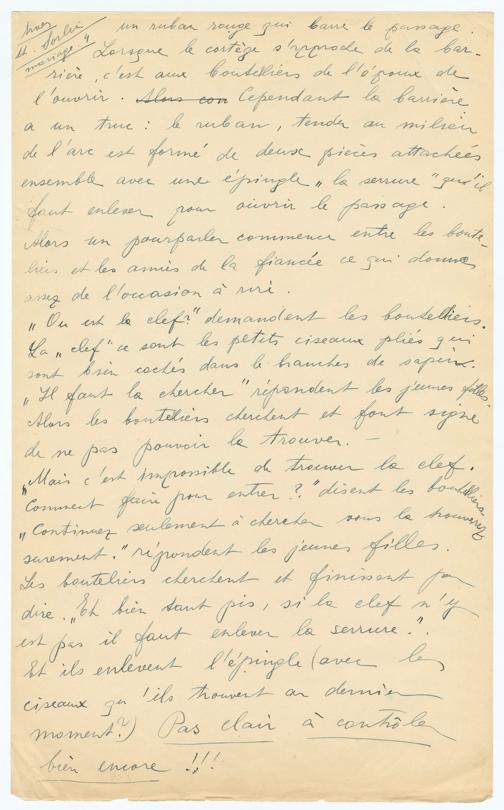 St. Sorlin
mariage 4
un ruban rouge qui barre le passage.
Lorsque le cortège s'approche de la bar-
rière, c'est aux bouteliers de l'époux de
l'ouvrir. Alors con Cependant la barrière
a un truc : le ruban, tendu au milieu
de l'arc est formé de deux pièces attachées
ensemble avec une épingle „ la serrure " qu'il
faut enlever pour ouvrir le passage.
Alors un pourparler commence entre les boute-
liers et les amies de la fiancée ce qui donne
assez de l'occasion à rire.
„ Ou est la clef?" demandent les bouteliers.
La „ clef" ce sont les petits ciseaux pliés qui
sont bien cachés dans le branches de sapin.
„ Il faut la chercher" répondent les jeunes filles.
Alors les bouteliers cherchent et font signe
de ne pas pouvoir la trouver. —
„ Mais c'est impossible de trouver la clef.
Comment faire pour entrer?" disent les bouteliers.
„ Continuez seulement à chercher vous la trouverez
surement." répondent les jeunes filles.
Les bouteliers cherchent et finissent par
dire. „ Eh bien tant pis, si la clef n'y
est pas il faut enlever la serrure.".
Et ils enlevent l'épingle (avec les
ciseaux qu'ils trouvent au dernier
moment?) Pas clair à contrôler
bien encore !!!